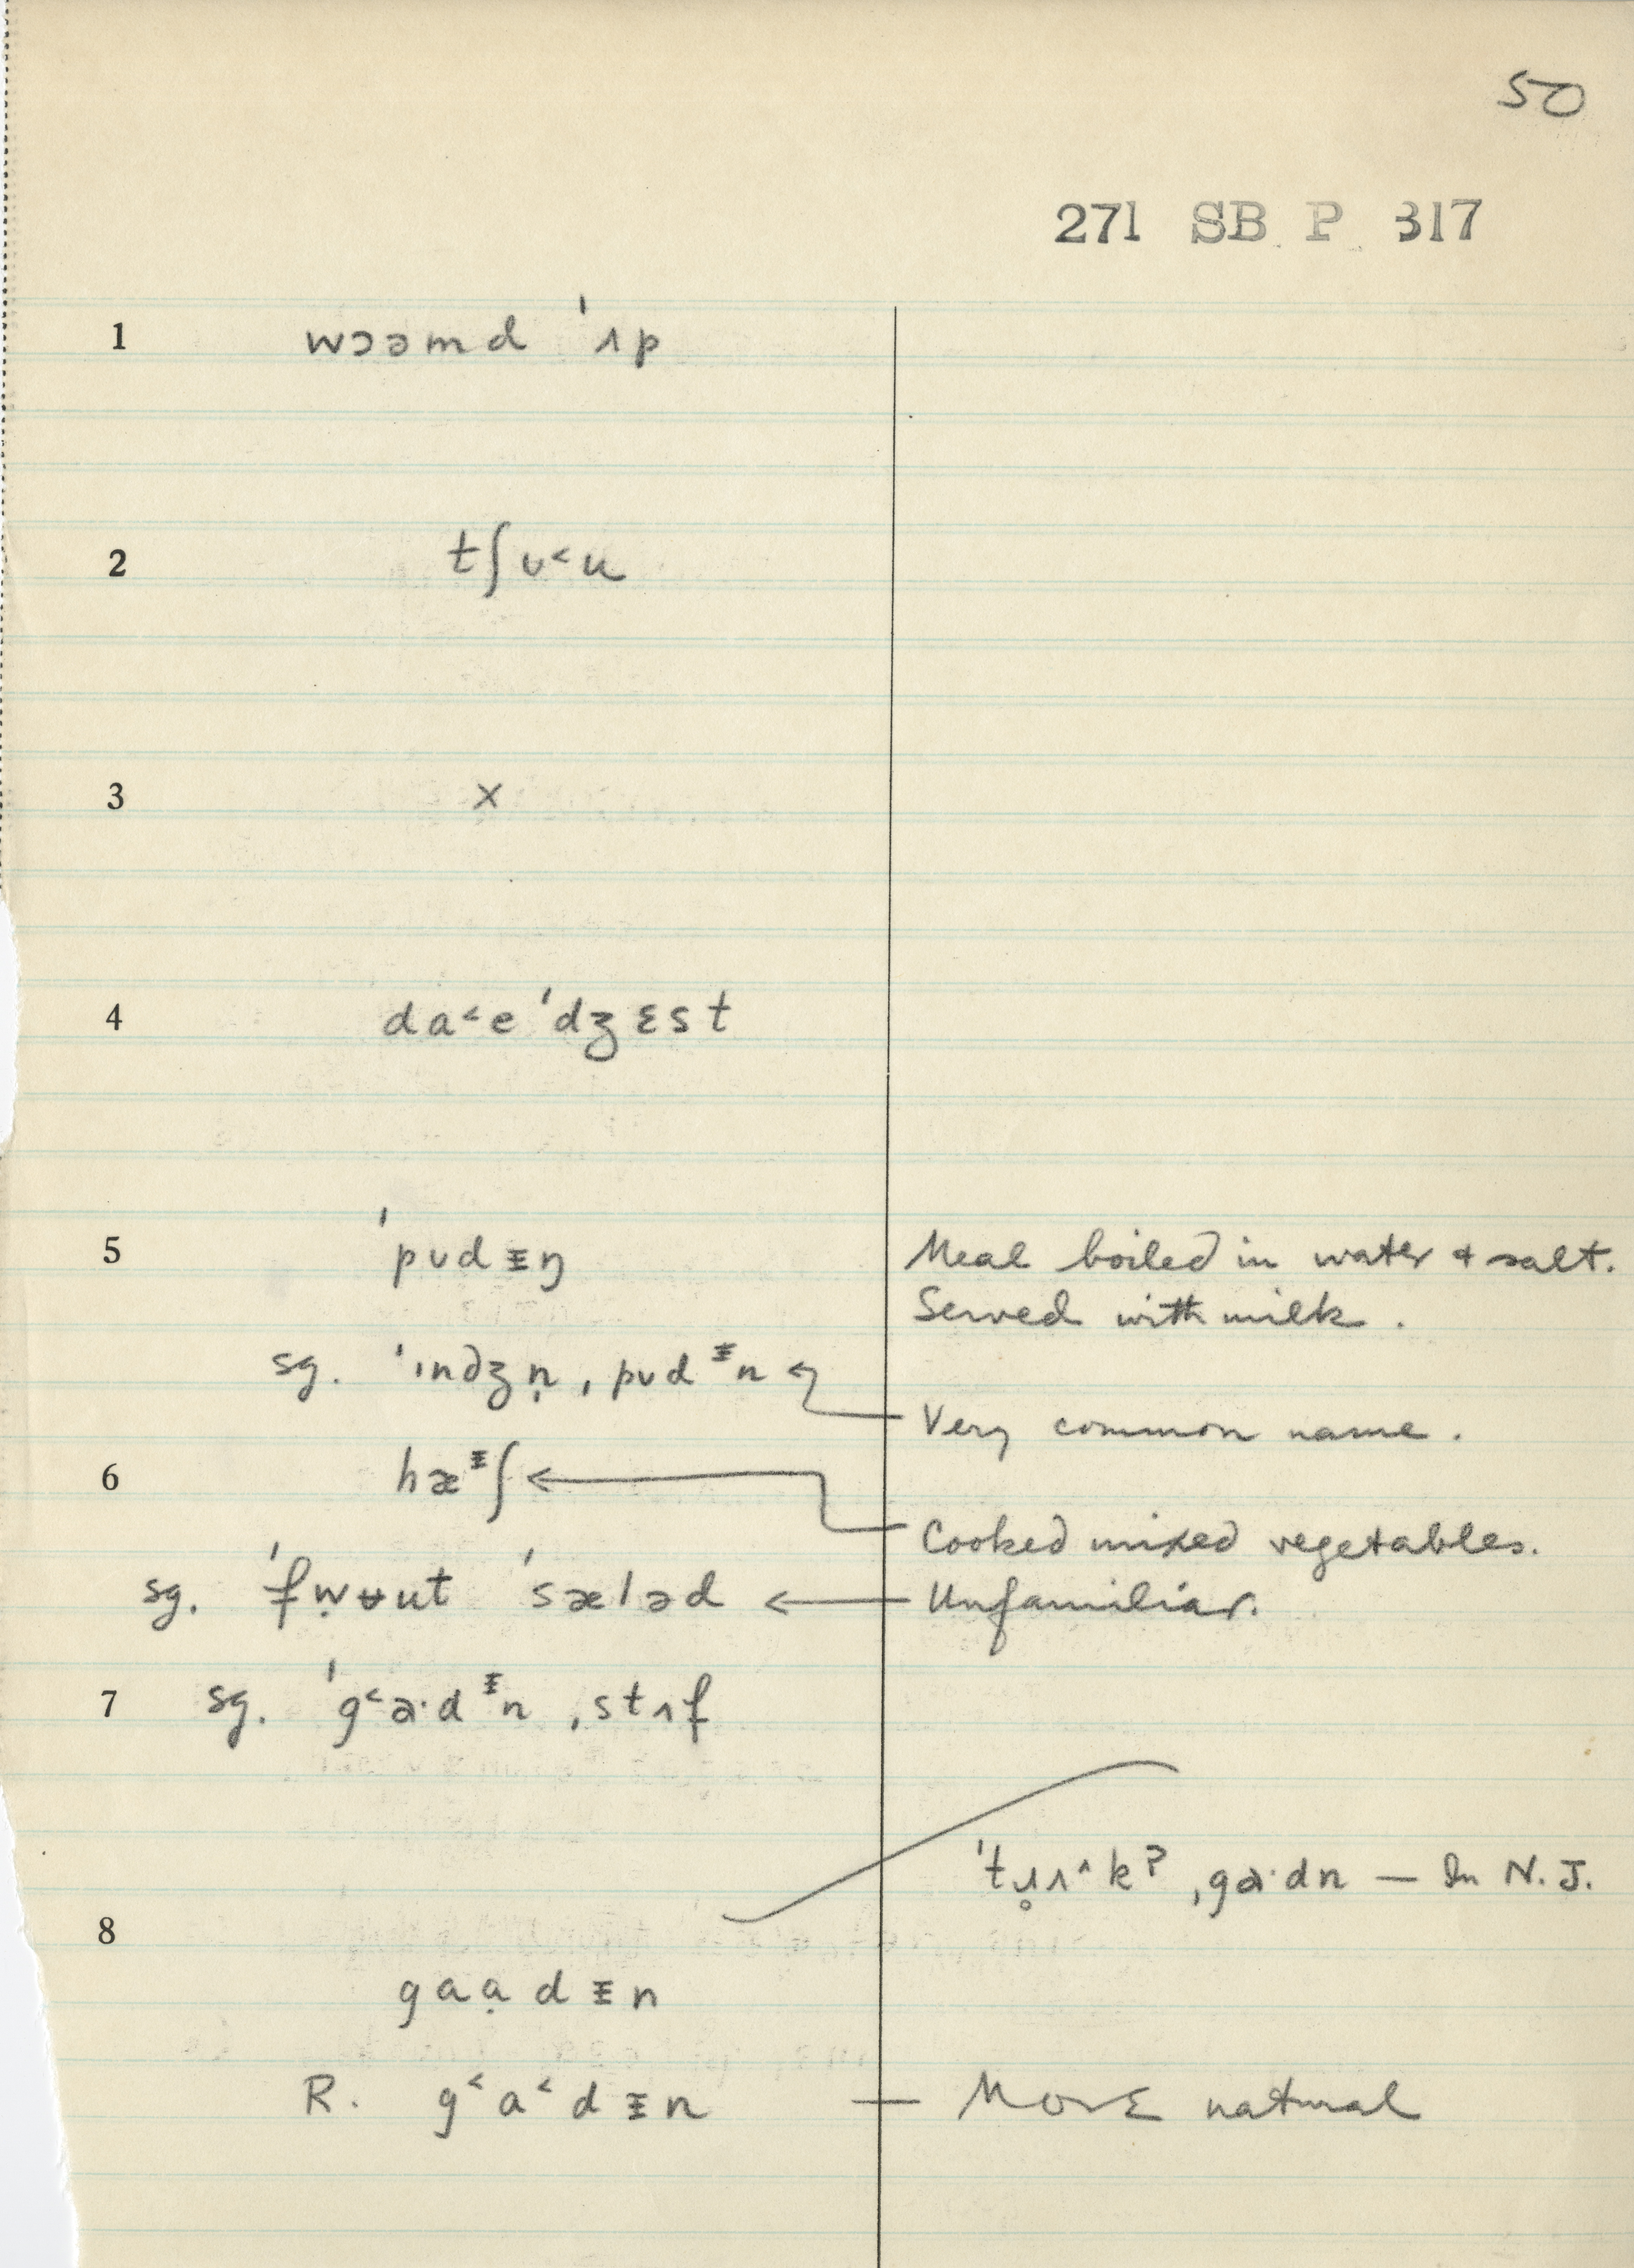 50
271 SB P 317
1 wɔəmd ˈʌp
2 tʃʊ˂u
3 ×
4 da˂e ˈdʒɛst
5 ˈpʊdᵻŋ Meal boiled in water & salt.
Served with milk.
sg. ˈɪndʒn̩ ˌpʊdᵻn ← Very common name.
6 hæᵻʃ ← Cooked mixed vegetables.
sg. ˈfẉʉut ˈsæləd ← Unfamiliar.
7 sg. ˈg˂a·dᵻn ˌstʌf
ˈtɹ̥ʌ˄kˀ ˌga·dn — In N. J.
8
gaạdᵻn
R. g˂a˂dᵻn — More natural